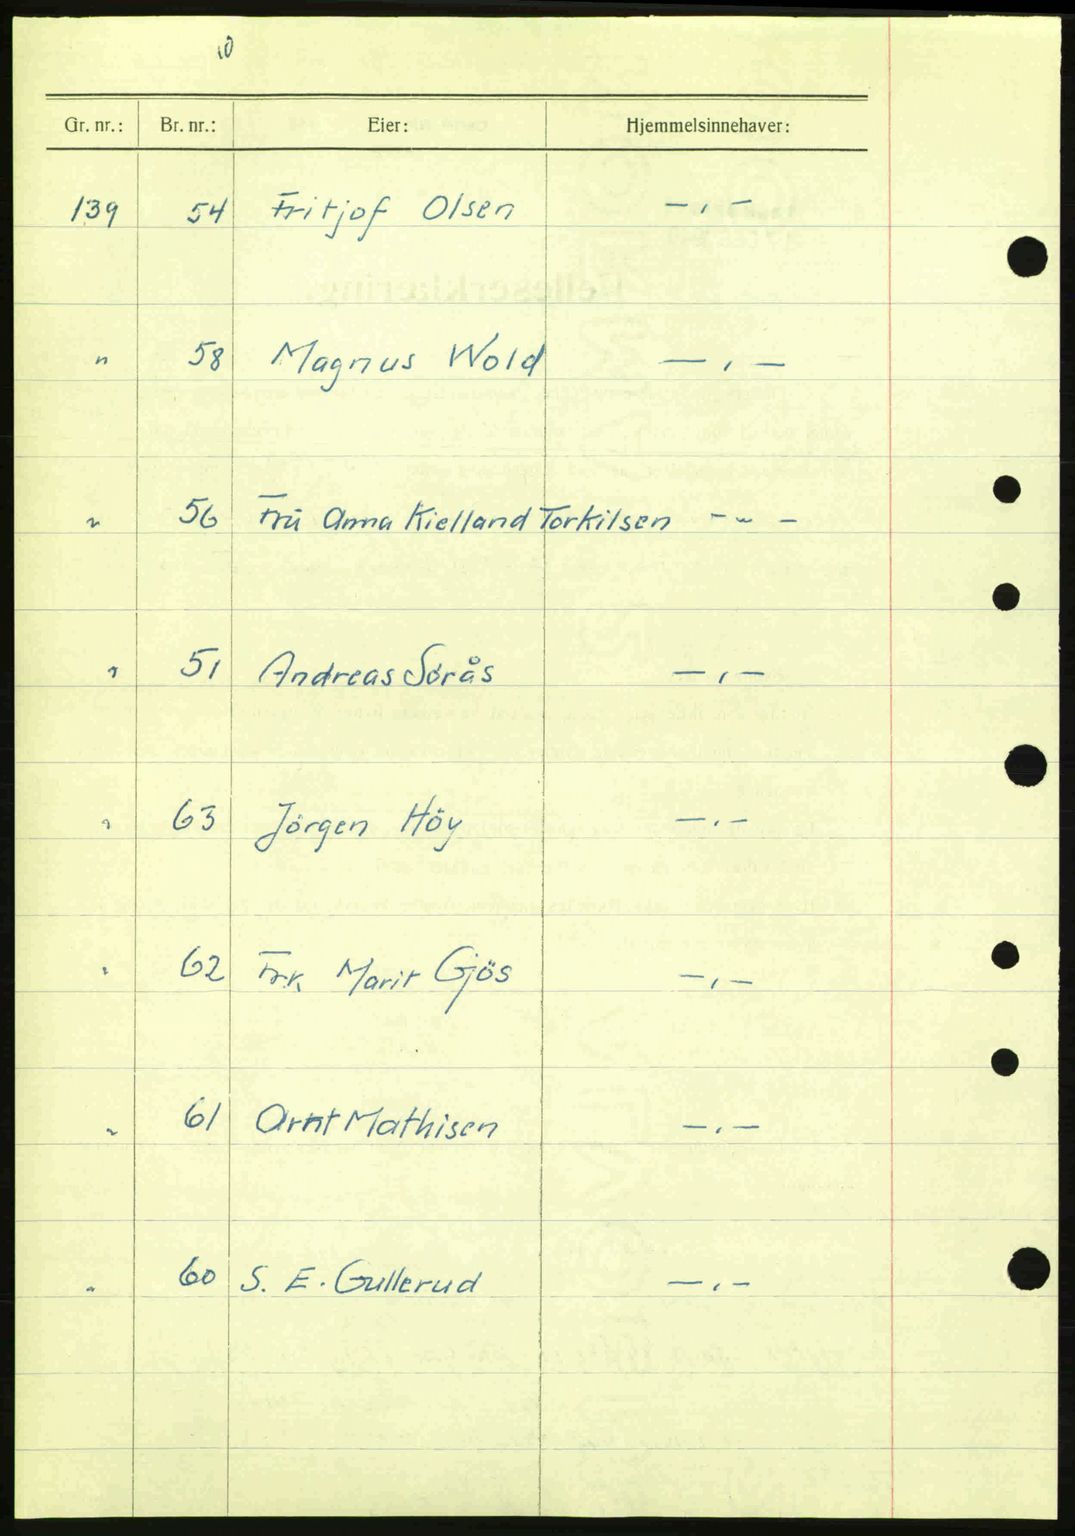 10
Gr. nr.: Br. nr.: Eier: Hjemmelsinnehaver:
139 54 Fritjof Olsen — , —
" 58 Magnus Wold — , —
" 56 Frü Anna Kielland Torkilsen — " —
" 51 Andreas Sörås — , —
" 63 Jörgen Höy — , —
" 62 Frk. Marit Gjös — , —
" 61 Arnt Mathisen — , —
" 60 S. E. Gullerud — , —